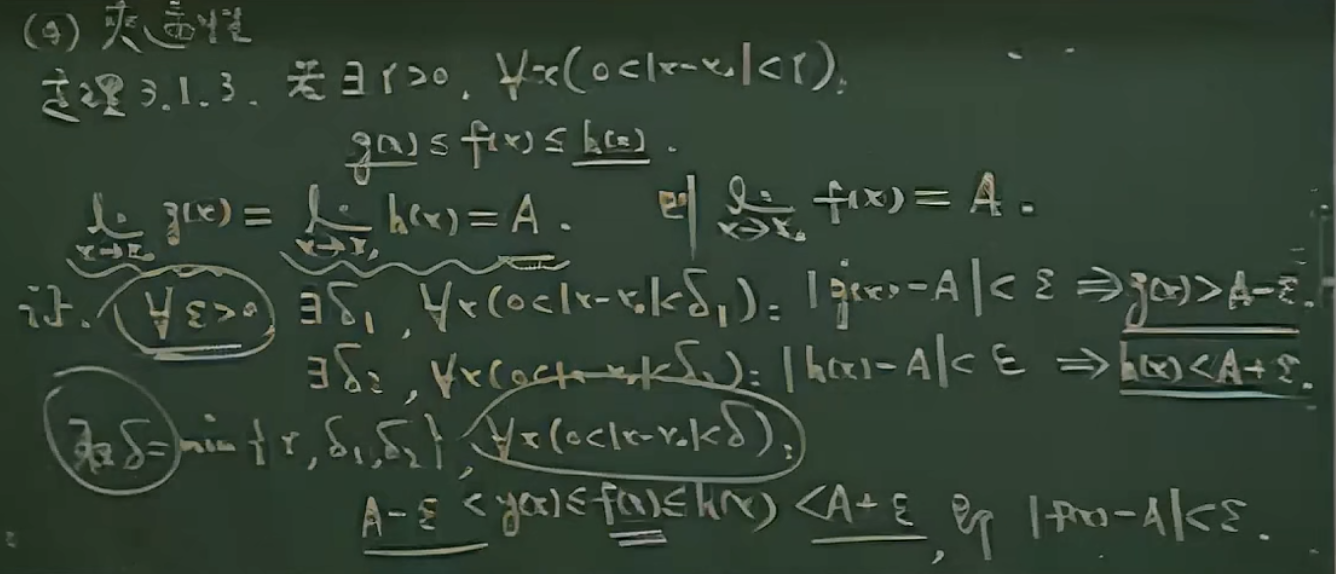 (4) 夹逼性
定理3.1.3. 若∃r>0, ∀x(0<|x-x₀|<r):
g(x)≤f(x)≤h(x).
lim_{x→x₀} g(x) = lim_{x→x₀} h(x) = A. 则 lim_{x→x₀} f(x) = A.
证. ∀ε>0, ∃δ₁, ∀x(0<|x-x₀|<δ₁): |g(x)-A|<ε ⇒ g(x)>A-ε.
∃δ₂, ∀x(0<|x-x₀|<δ₂): |h(x)-A|<ε ⇒ h(x)<A+ε.
取δ=min{r,δ₁,δ₂}, ∀x(0<|x-x₀|<δ):
A-ε<g(x)≤f(x)≤h(x)<A+ε, 即 |f(x)-A|<ε.